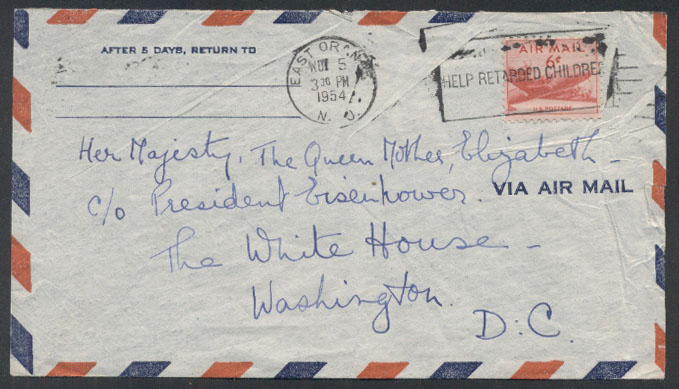 AFTER 5 DAYS, RETURN TO
EAST ORANGE
NOV 5
3 30 PM
1954
N. J.
AIR MAIL
6¢
HELP RETARDED CHILDREN
U.S. POSTAGE
Her Majesty, The Queen Mother, Elizabeth -
c/o President Eisenhower.
VIA AIR MAIL
The White House -
Washington.
D. C.